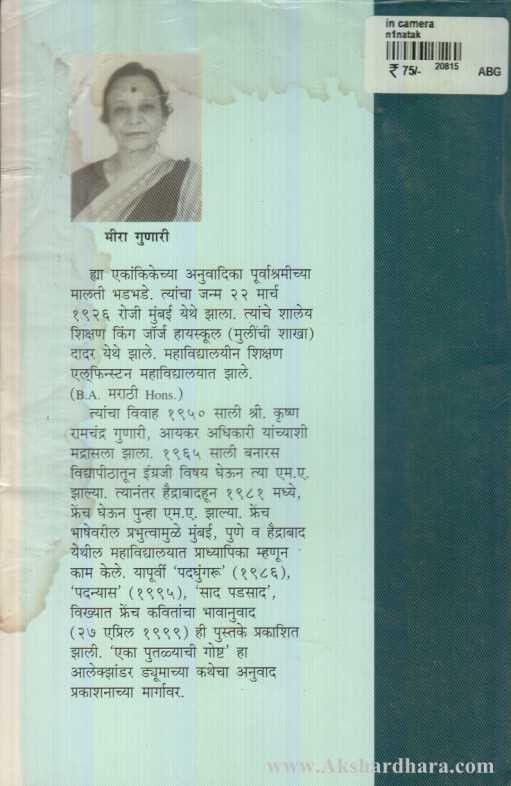 in camera
n1natak
₹ 75/- 20815 ABG
मीरा गुणारी
ह्या एकांकिकेच्या अनुवादिका पूर्वाश्रमीच्या
मालती भडभडे. त्यांचा जन्म २२ मार्च
१९२६ रोजी मुंबई येथे झाला. त्यांचे शालेय
शिक्षण किंग जॉर्ज हायस्कूल (मुलींची शाखा)
दादर येथे झाले. महाविद्यालयीन शिक्षण
एल्फिन्स्टन महाविद्यालयात झाले.
(B.A. मराठी Hons.)
त्यांचा विवाह १९५० साली श्री. कृष्ण
रामचंद्र गुणारी, आयकर अधिकारी यांच्याशी
मद्रासला झाला. १९६५ साली बनारस
विद्यापीठातून इंग्रजी विषय घेऊन त्या एम.ए.
झाल्या. त्यानंतर हैद्राबादहून १९८१ मध्ये,
फ्रेंच घेऊन पुन्हा एम.ए. झाल्या. फ्रेंच
भाषेवरील प्रभुत्वामुळे मुंबई, पुणे व हैद्राबाद
येथील महाविद्यालयात प्राध्यापिका म्हणून
काम केले. यापूर्वी 'पदघुंगरू' (१९८६),
'पदन्यास' (१९९५), 'साद पडसाद',
विख्यात फ्रेंच कवितांचा भावानुवाद
(२७ एप्रिल १९९९) ही पुस्तके प्रकाशित
झाली. 'एका पुतळ्याची गोष्ट' हा
आलेक्झांडर ड्यूमाच्या कथेचा अनुवाद
प्रकाशनाच्या मार्गावर.
www.Akshardhara.com